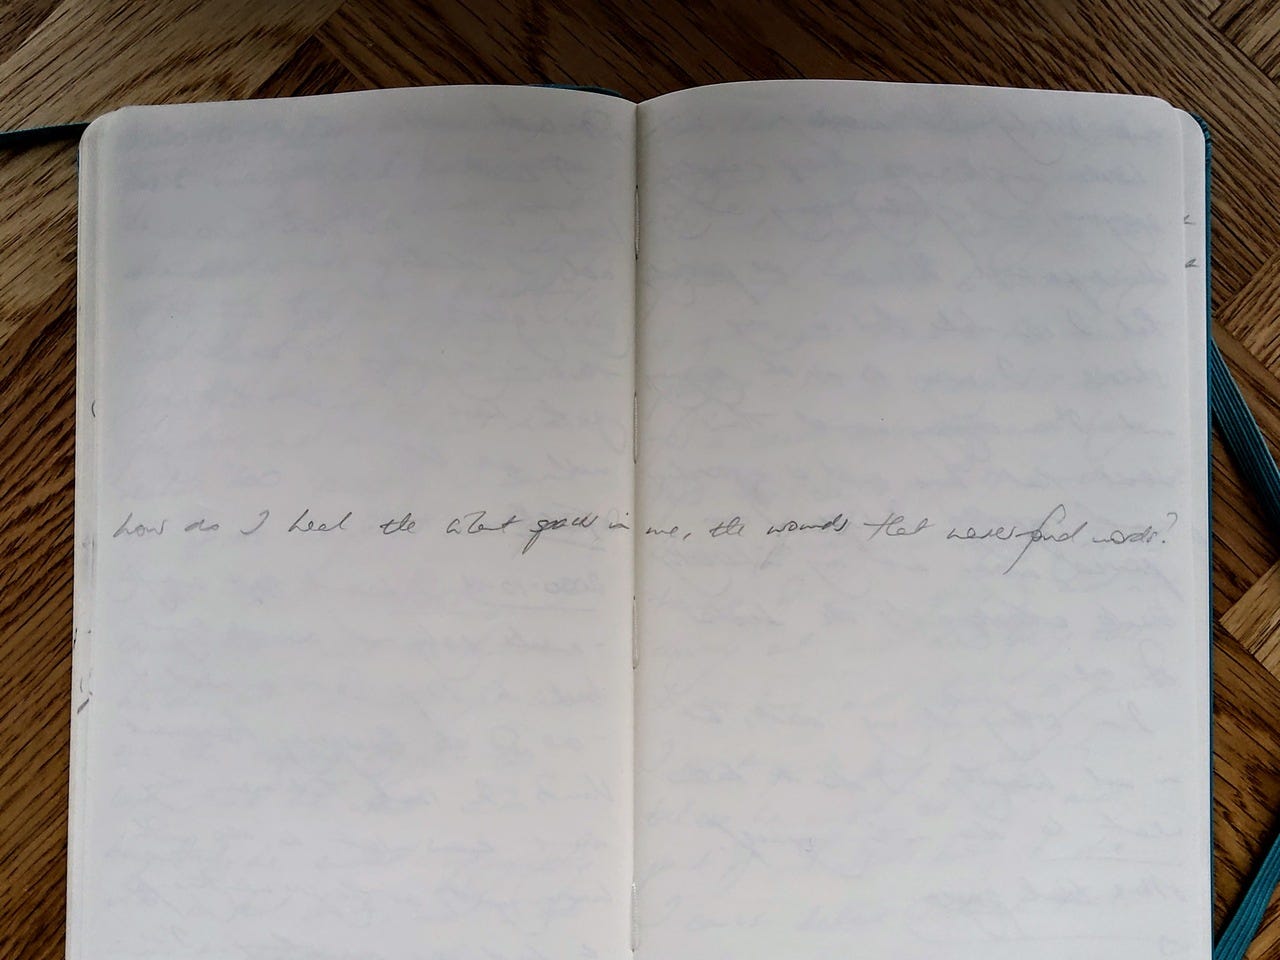 how do I heal the silent spaces in me, the wounds that never find words?